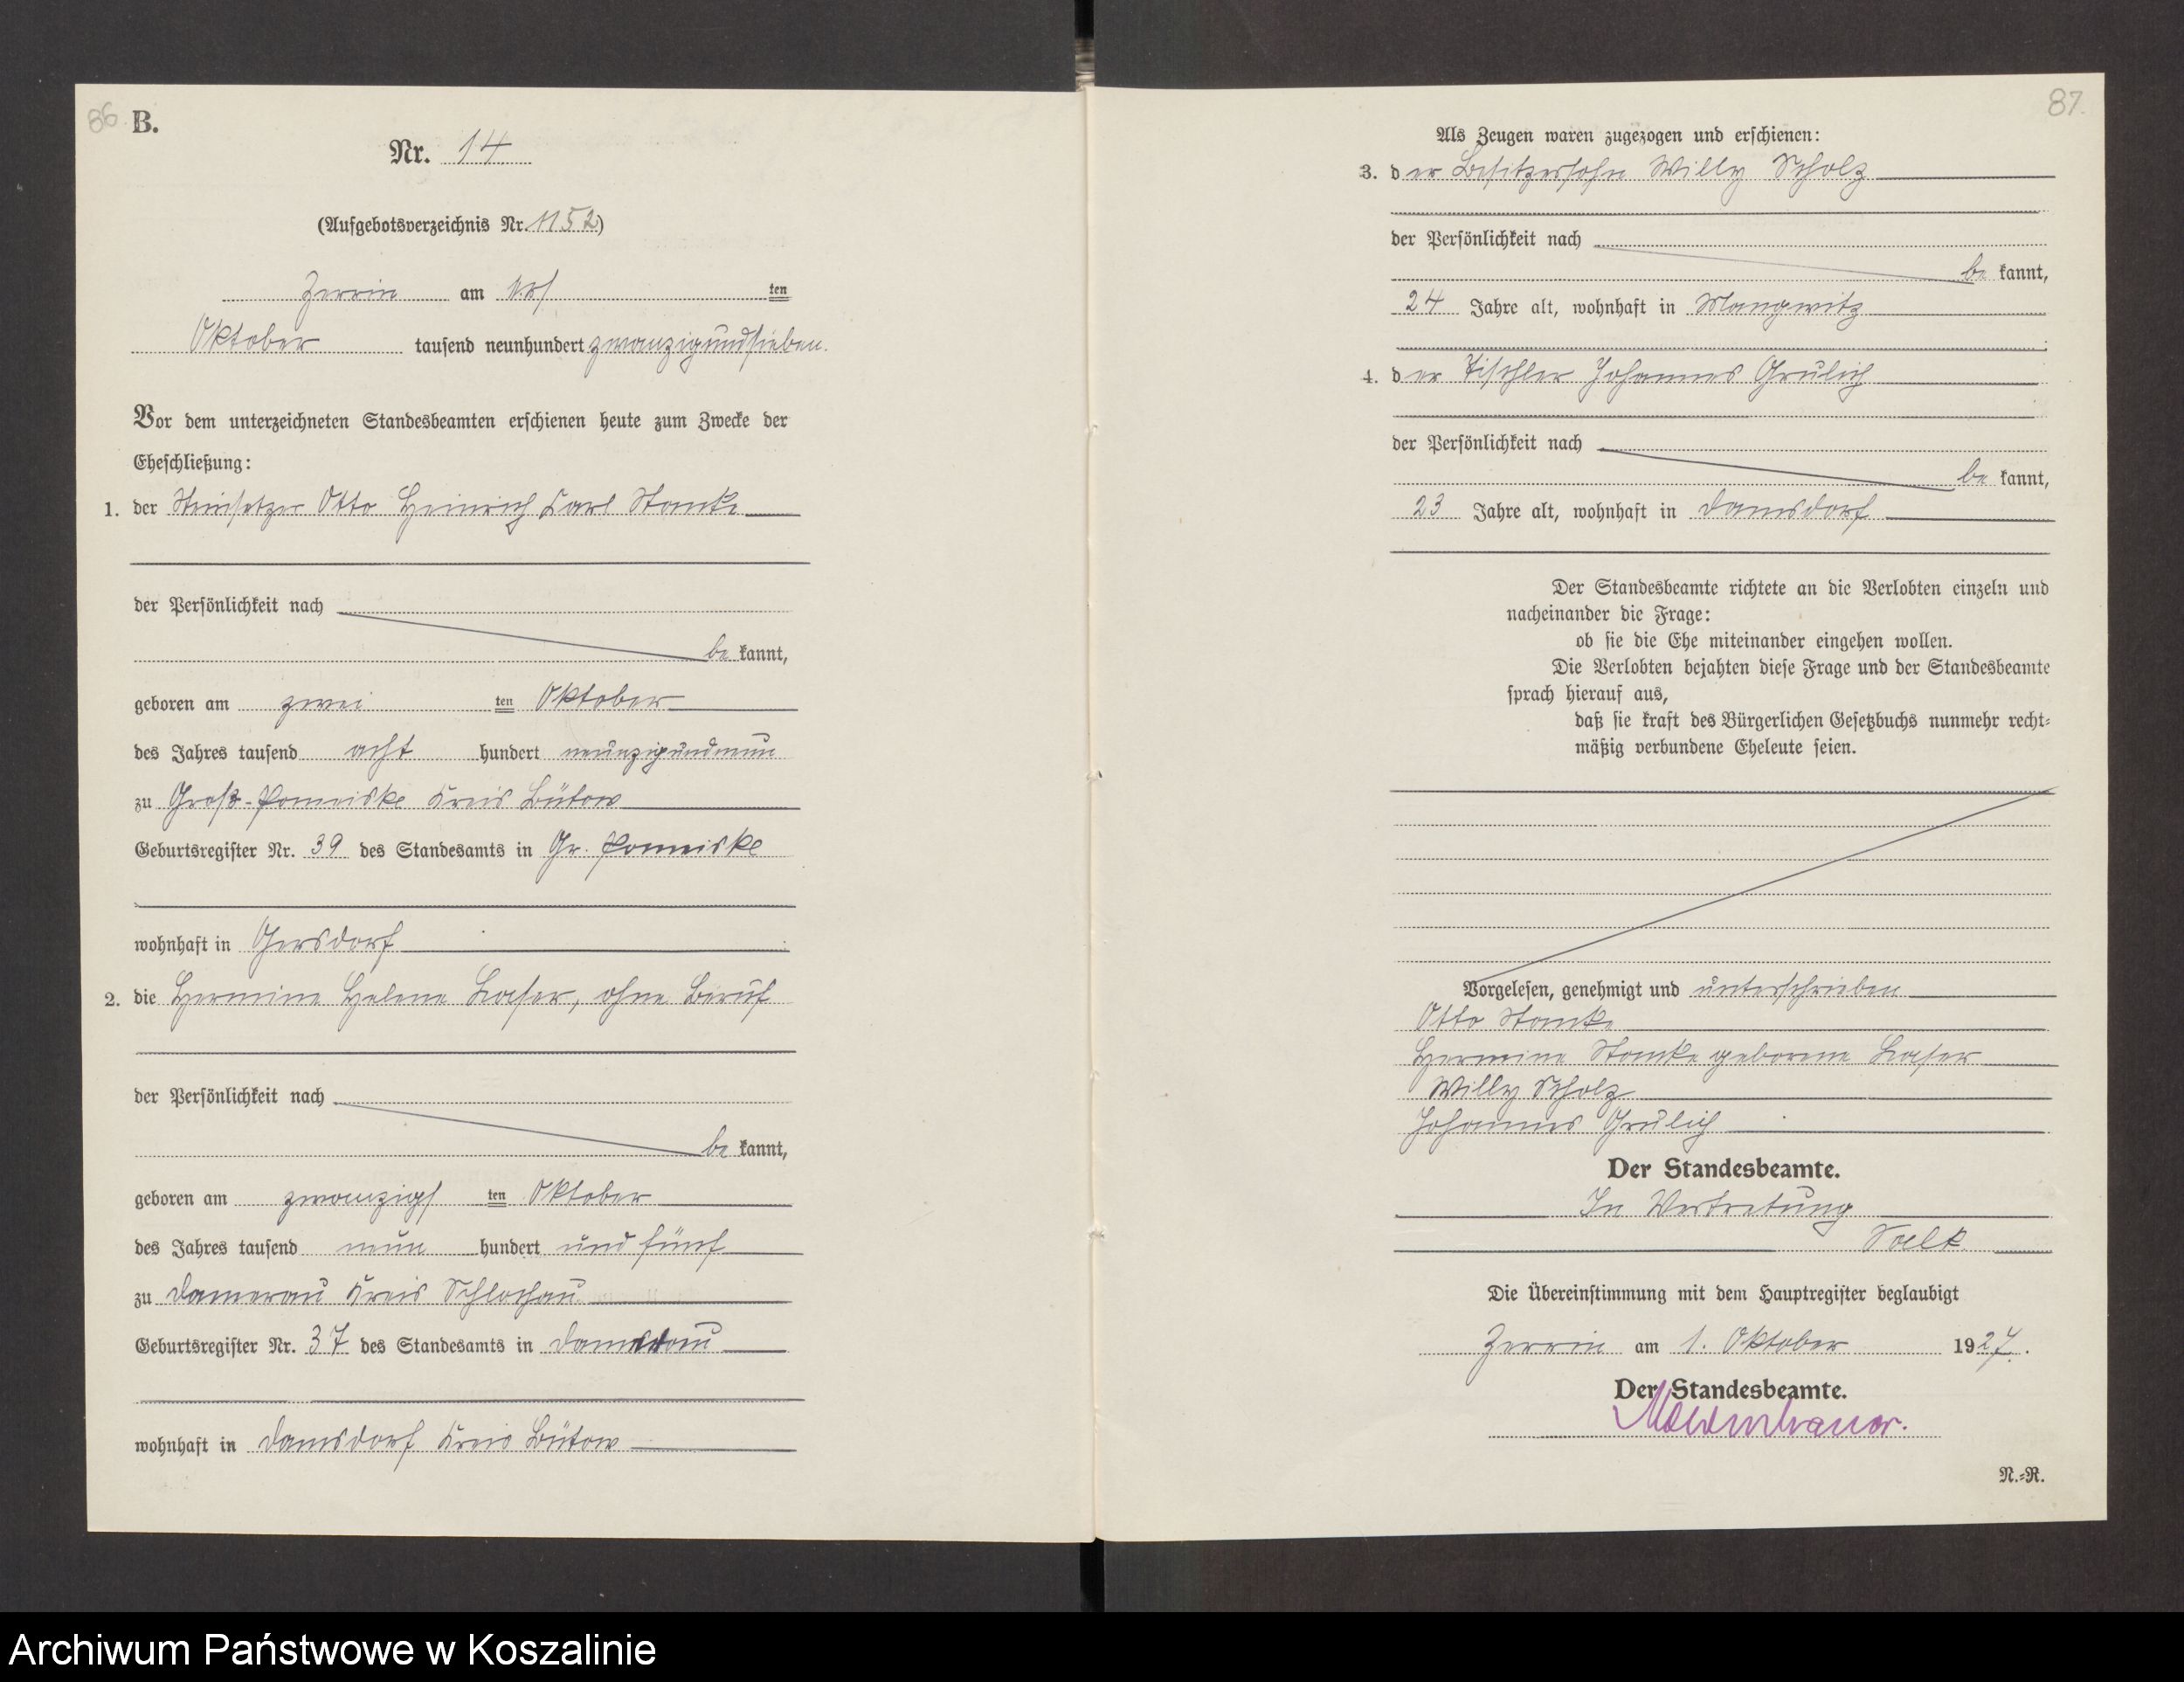 86
B.
Nr. 14
(Aufgebotsverzeichnis Nr. 1152)
Zerrin am ersten
Oktober tausend neunhundert zwanzigundsieben.
Vor dem unterzeichneten Standesbeamten erschienen heute zum Zwecke der
Eheschließung:
1. der Steinsetzer Otto Heinrich Karl Stanke
der Persönlichkeit nach
be kannt,
geboren am zwei ten Oktober
des Jahres tausend acht hundert neunzigundneun
zu Groß-Pomeiske Kreis Bütow
Geburtsregister Nr. 39 des Standesamts in Gr. Pomeiske
wohnhaft in Gersdorf
2. die Hermine Helene Laser, ohne Beruf
der Persönlichkeit nach
be kannt,
geboren am zwanzigs ten Oktober
des Jahres tausend neun hundert und fünf
zu Damerau Kreis Schlochau
Geburtsregister Nr. 37 des Standesamts in
wohnhaft in Damsdorf Kreis Bütow
87
Als Zeugen waren zugezogen und erschienen:
3. der Besitzersohn Willy Scholz
der Persönlichkeit nach
be kannt,
24 Jahre alt, wohnhaft in Mangwitz
4. der Tischler Johannes Grulich
der Persönlichkeit nach
be kannt,
23 Jahre alt, wohnhaft in Damsdorf
Der Standesbeamte richtete an die Verlobten einzeln und
nacheinander die Frage:
ob sie die Ehe miteinander eingehen wollen.
Die Verlobten bejahten diese Frage und der Standesbeamte
sprach hierauf aus,
daß sie kraft des Bürgerlichen Gesetzbuchs nunmehr recht-
mäßig verbundene Eheleute seien.
Vorgelesen, genehmigt und unterschrieben
Otto Stanke
Hermine Stanke geborene Laser
Willy Scholz
Johannes Grulich
Der Standesbeamte.
In Vertretung
Die Übereinstimmung mit dem Hauptregister beglaubigt
Zerrin am 1. Oktober 1927.
Der Standesbeamte.
N.-R.
Archiwum Państwowe w Koszalinie